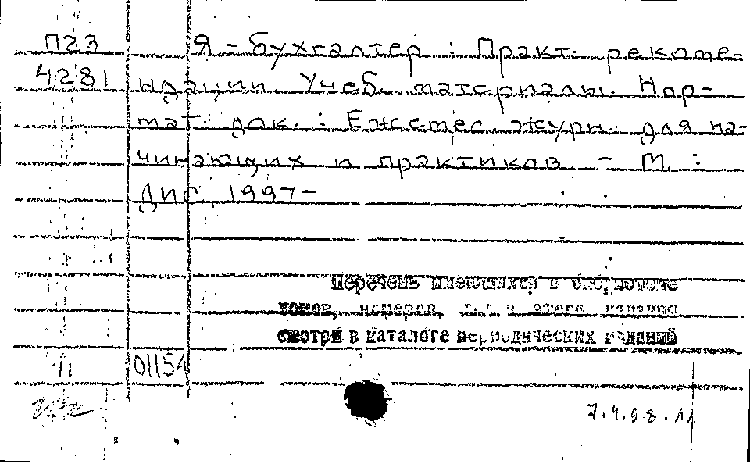 П23 Я - бухгалтер : Практ. рекоме-
4281 ндации. Учеб. материалы. Нор-
мат. док. : Ежемес. журн. для на-
чинающих и практиков. - М. :
ДИС, 1997-
Перечень имеющихся в библиотеке
томов, номеров, т.д. этого издания
смотри в каталоге периодических изданий
01154